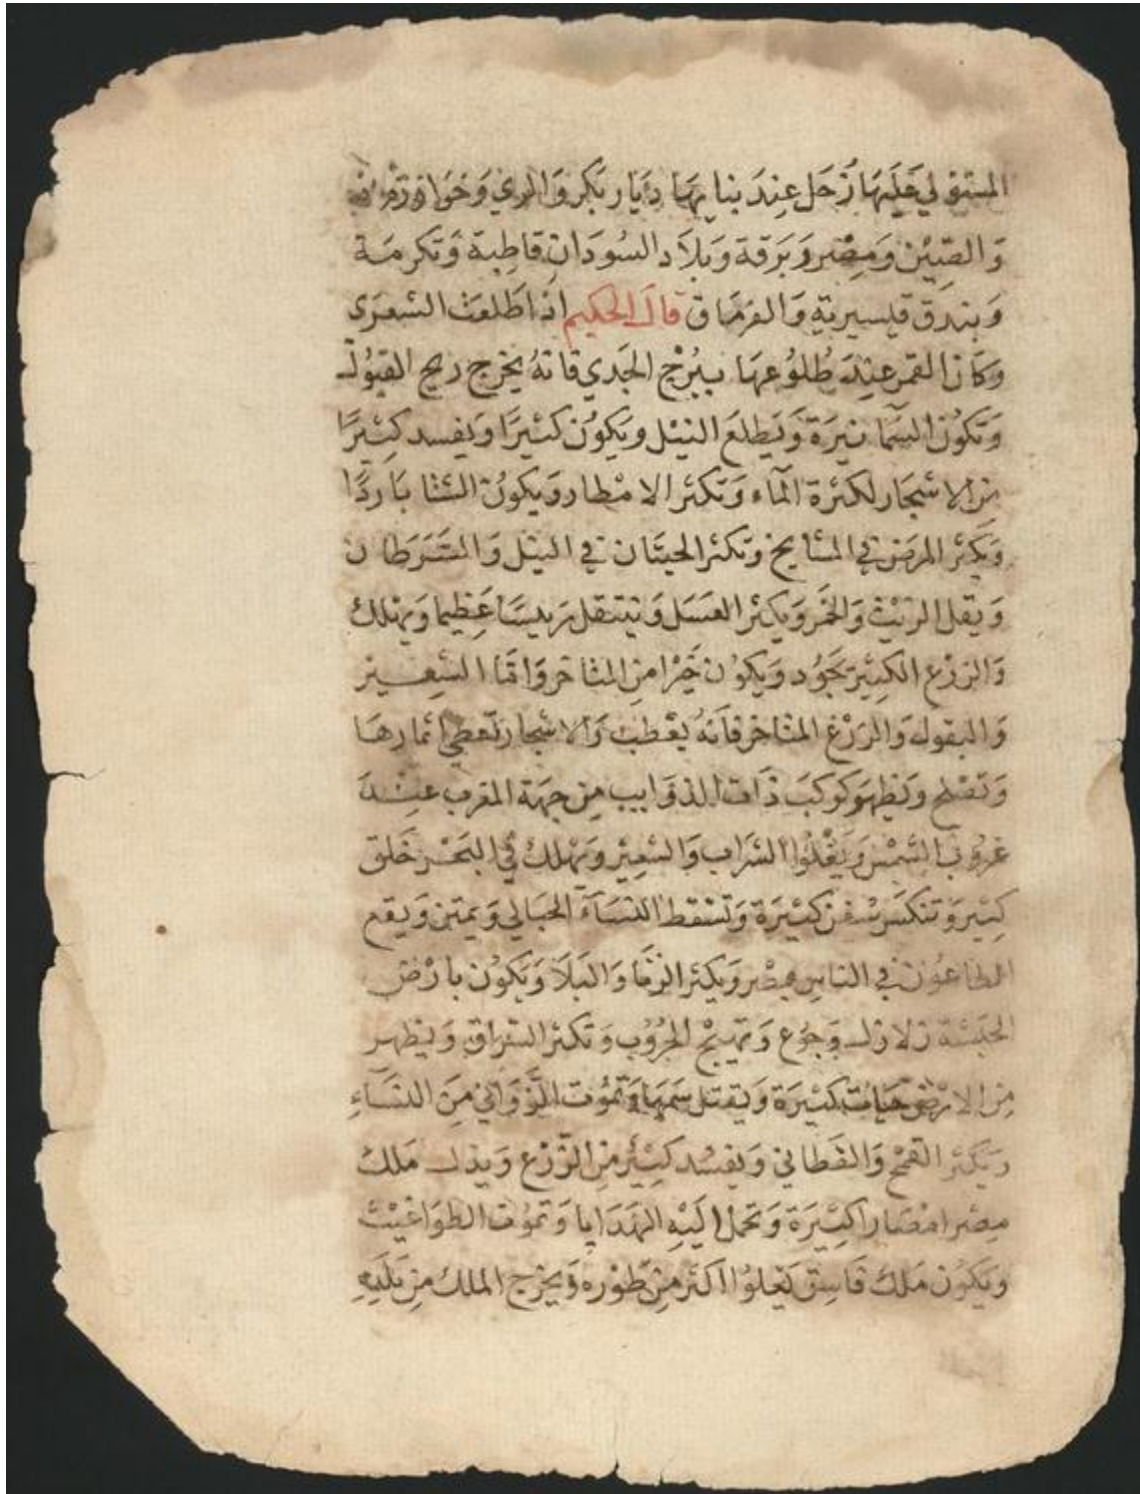 المستولي عَلَيهَا زُحَل عِندَ بنايهَا دِيَار بَكر وَالري وَخوَارزم
وَالصِّين وَمِصْر وَبَرَقة وَبلَاد السُودَان قاطِبة وَتكرمَة
وَبندق قليسيرية وَالفرمَاق قالَ الحكيم اذا طَلعَت الشعرَى
وَكَان القمر عِنْدَ طُلوُعهَا ببُرْج الجَدي فانهُ يخرج ريح القبُول
وَتكوُن السَّمَا نيرَة وَيَطلعَ النيْل ويَكوُن كثيْرًا وَيفسد كثِيرًا
مِن الاشجَار لكثرة المَآء وَتكثر الامْطار وَيكونُ الشتا بَاردًا
وَيَكثر المرَض في المشايخ وَتكثر الحيتَان في النيْل وَالسَّرَطان
وَيقل الزيْت وَالخمْر وَيكثر العسَل وَينتقل رَييسَا عَظِيما وَيهْلك
وَالزرْع الكبيْر يجَوُد وَيكوُن خَيْرا من المتاخر وَامَّا الشعِيْر
وَالبقول وَالزرْع المتاخر فانهُ يعْطبْ وَالاشجار تعطي اثمارهَا
وَتصْلح وَيظهَر كوكبَ ذَات الذوَايب مِن جهَة المغرب عِنْدَ
غرُوُب الشمْس وَيَغْلوُا الشرَاب وَالشعِيْر وَيَهْلك في البَحْر خَلق
كثِير وَتنكسَر سُفن كثيْرَة وَتسْقط النسَآء الحبَالي وَيمتن وَيقع
الطاعُون في الناسِ بمِصْر وَيكثر الزنَا وَالبَلآ وَيَكوُن بارْض
الحبَشة زلازل وَجوُع وَتهيْج الحُرُوب وَتكثر السرَاق وَيظهر
مِن الارْض حيَات كثيْرَة وَيقتل سَمهَا وَتموُت الزَّوَاني مِنَ النسَآءِ
وَيَكثر القمْح وَالقطاني وَيفسُد كثِيْر مِن الزرْع وَيذل مَلك
مِصْر امْصَارا كثِيْرَة وَتحمل اليْهِ الهَدَايا وَتموُت الطوَاغيْت
وَيَكوُن مَلك فاسِق يَعلوُا اكثر مِنْ طَوْره وَيَخرْج الملك مِن بلَدِهِ